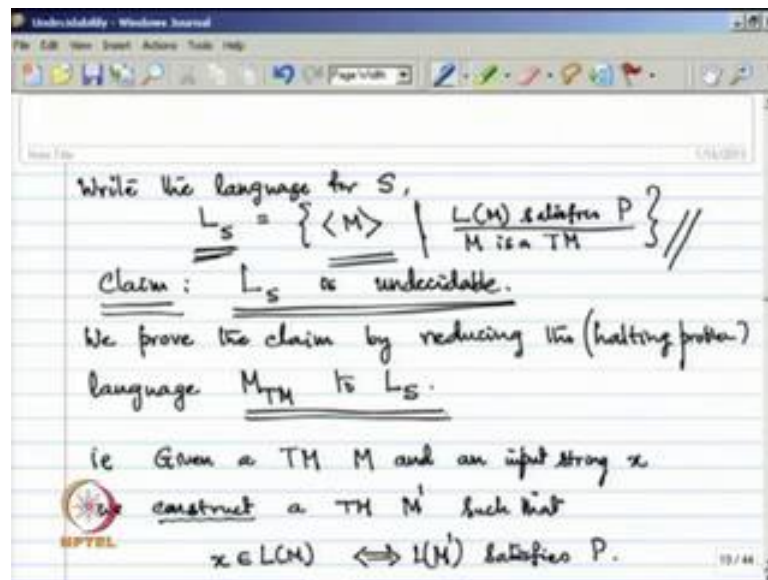 Undecidability - Windows Journal
File Edit View Insert Actions Tools Help
Page Width
Note Title
Write the language for S,
L_S = { <M> | L(M) satisfies P
M is a TM } //
Claim : L_S is undecidable.
We prove the claim by reducing the (halting problem)
language M_TM to L_S.
ie Given a TM M and an input string x
we construct a TM M' such that
x ∈ L(M) ⟺ L(M') satisfies P.
NPTEL